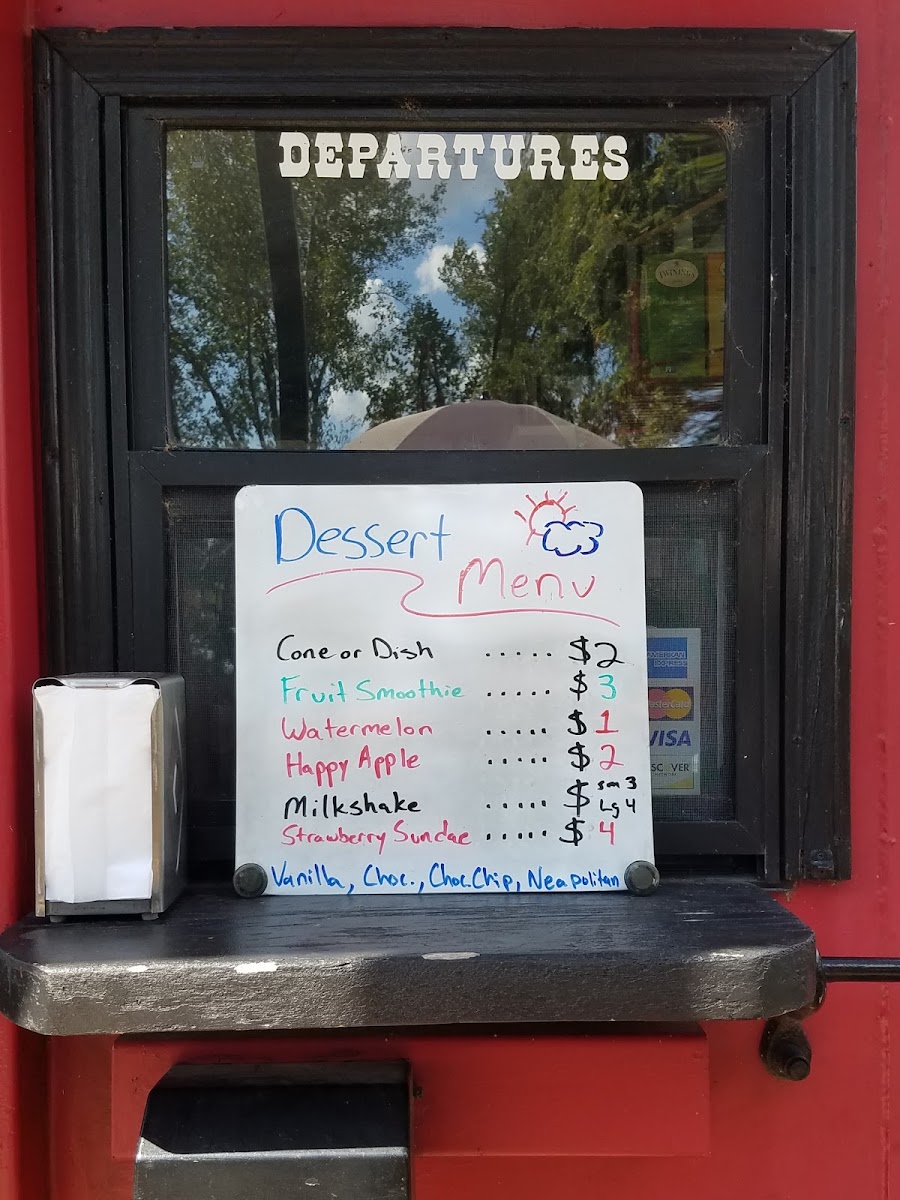 DEPARTURES
TWININGS
Dessert
Menu
Cone or Dish ..... $2
Fruit Smoothie ..... $3
Watermelon ..... $1
Happy Apple ..... $2
Milkshake ..... $ sm 3
Lg 4
Strawberry Sundae ..... $4
Vanilla, Choc., Choc.Chip, Neapolitan
AMERICAN
EXPRESS
MasterCard
VISA